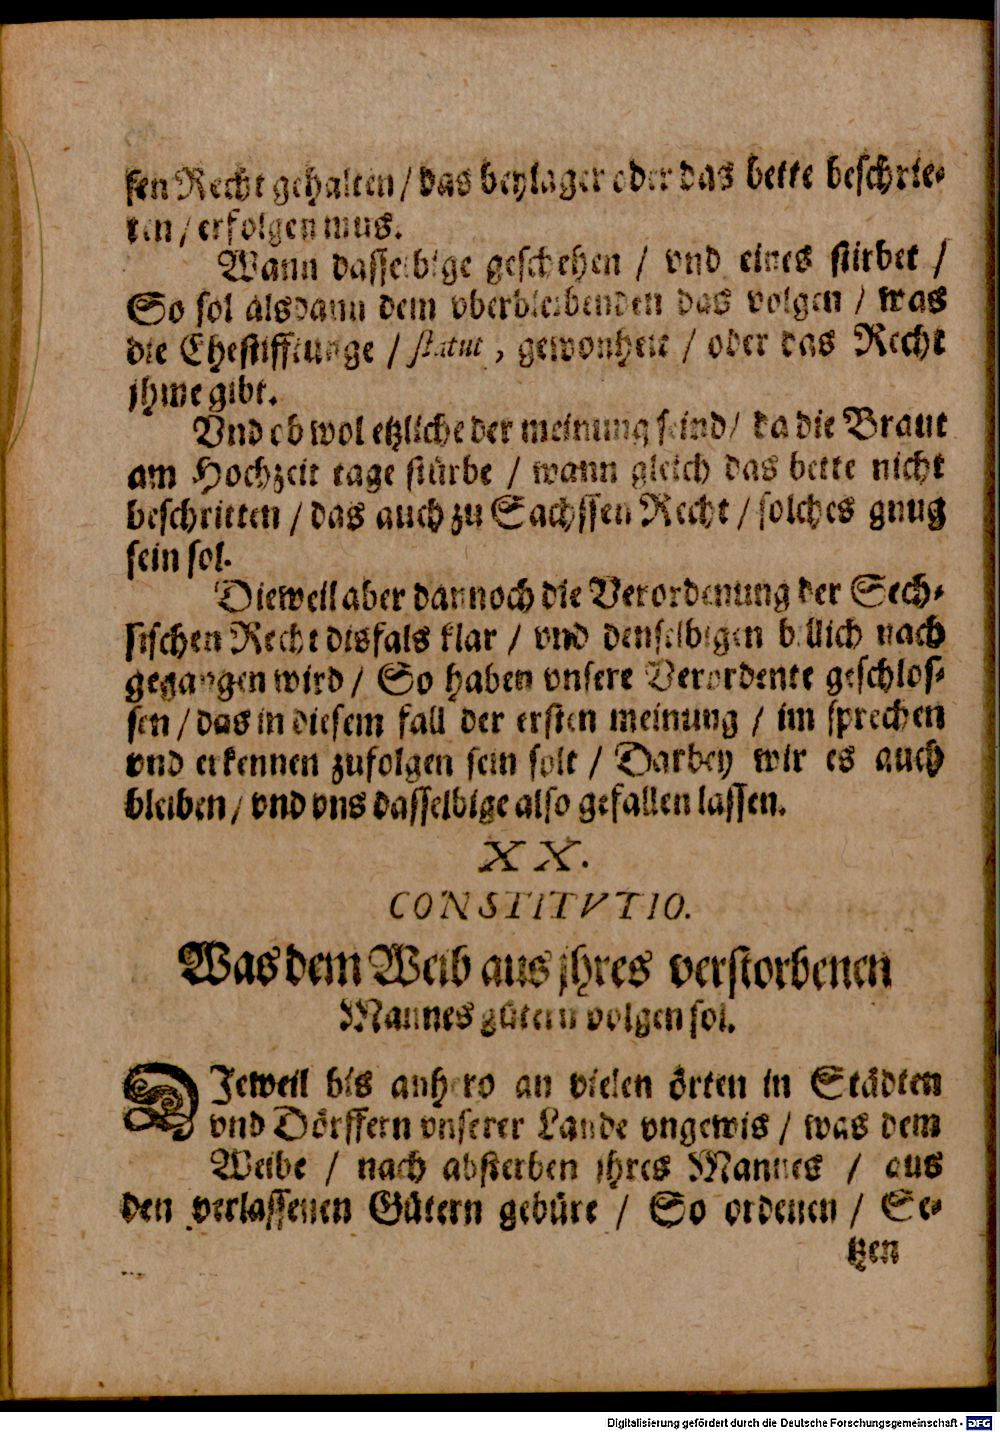 sen Recht gehalten / das beylager oder das bette beschrie-
ten / erfolgen mus.
Wann dasselbige geschehen / vnd eines stirbet /
So sol alsdann dem vberbleibenden das volgen / was
die Ehestifftunge / statut, gewonheit / oder das Recht
jhme gibt.
Vnd ob wol etzliche der meinung seind / da die Braut
am Hochzeit tage stürbe / wann gleich das bette nicht
beschritten / das auch zu Sachssen Recht / solches gnug
sein sol.
Dieweil aber dannoch die Verordenung der Sech-
sischen Recht disfals klar / vnd denselbigen billich nach
gegangen wird / So haben vnsere Verordente geschlos-
sen / das in diesem fall der ersten meinung / im sprechen
vnd erkennen zufolgen sein solt / Darbey wir es auch
bleiben / vnd vns dasselbige also gefallen lassen.
XX.
CONSTITVTIO.
Was dem Weib aus jhres verstorbenen
Mannes gütern volgen sol.
DJeweil bis anhero an vielen örten in Städten
vnd Dörffern vnserer Lande vngewis / was dem
Weibe / nach absterben jhres Mannes / aus
den verlassenen Gütern gebüre / So ordenen / Se-
tzen
Digitalisierung gefördert durch die Deutsche Forschungsgemeinschaft - DFG